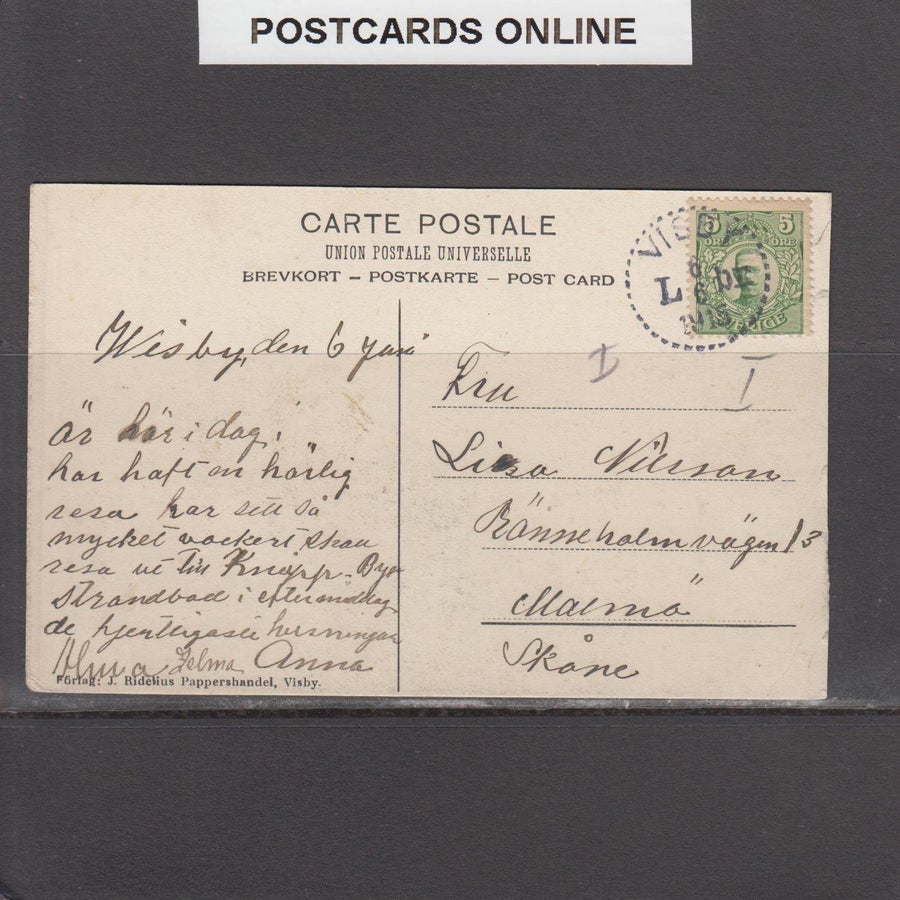 POSTCARDS ONLINE
CARTE POSTALE
UNION POSTALE UNIVERSELLE
BREVKORT – POSTKARTE – POST CARD
VISBY
L 6 6 bE
1915
5 5
ÖRE ÖRE
SVERIGE
Wisby, den 6 Juni
Är här i dag,
har haft en härlig
resa har sett så
mycket vackert skall
resa ut till Knäpp-Byn
Strandbad i eftermiddag
de hjertligaste helsningar
Alma Selma Anna
Förlag: J. Ridelius Pappershandel, Visby.
I I
Fru
Nilsson
Rönneholmsvägen 13
Malmö
Skåne